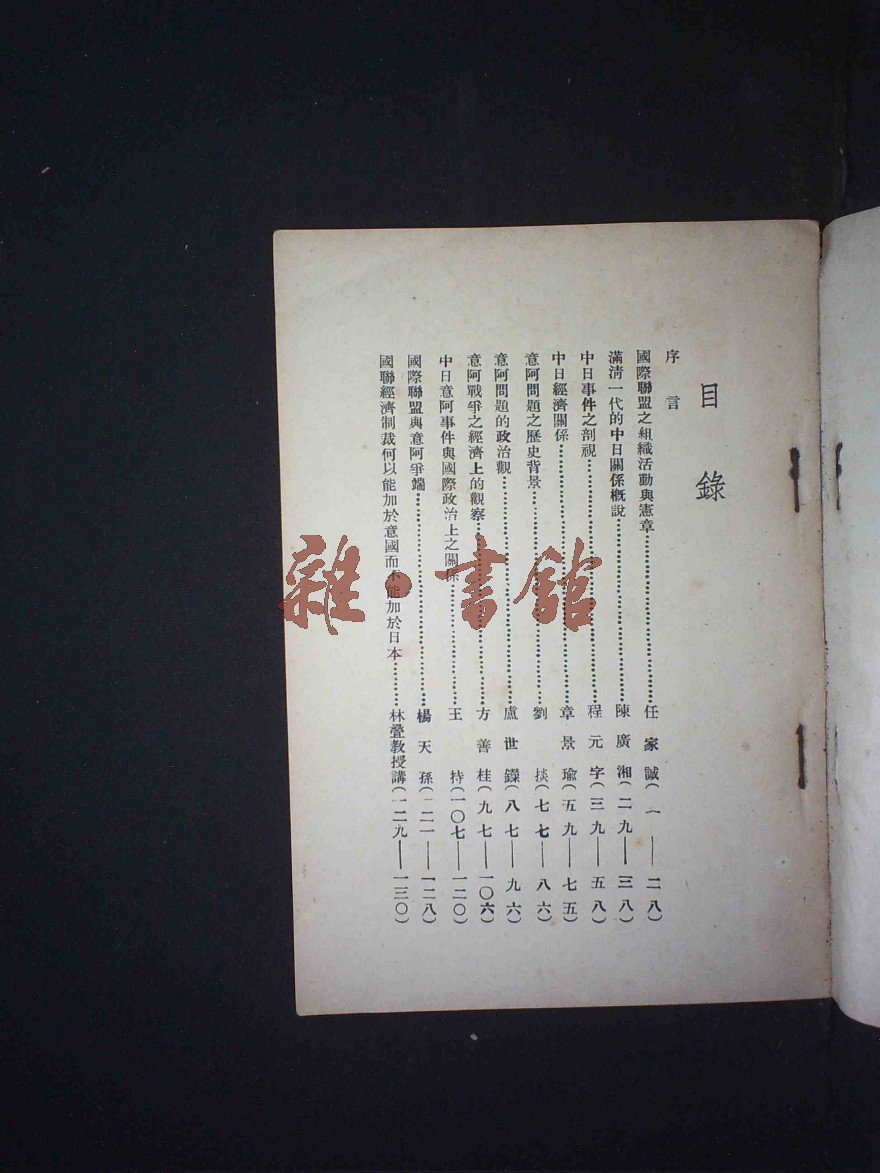 目錄
序言
國際聯盟之組織活動與憲章…………任家誠(一——二八)
滿清一代的中日關係概說…………陳廣湘(二九——三八)
中日事件之剖視…………程元字(三九——五八)
中日經濟關係…………章景瑜(五九——七五)
意阿問題之歷史背景…………劉 掞(七七——八六)
意阿問題的政治觀…………盧世鏷(八七——九六)
意阿戰爭之經濟上的觀察…………方善桂(九七——一〇六)
中日意阿事件與國際政治上之關係…………王 持(一〇七——一二〇)
國際聯盟與意阿爭端…………楊天孫(一二一——一二八)
國聯經濟制裁何以能加於意國而不能加於日本………林疊教授講(一二九——一三〇)
雜·書館